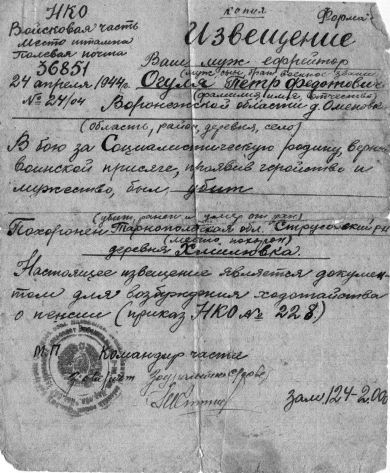 копия
Форма
НКО
Войсковая часть
Место штампа
Полевая почта
36851
24 апреля 1944г.
№ 24/04
Извещение
Ваш муж ефрейтор
(муж, сын, брат, военное звание)
Огуля Петр Федотович
(фамилия, имя, отчество)
Воронежской области д.
(область, район, деревня, село)
В бою за Социалистическую родину, верный
воинской присяге, проявив геройство и
мужество, был убит
(убит, ранен и умер от ран)
Похоронен Тарнопольская обл. Струсовский р-н
(место похорон)
деревня Хмилевка.
Настоящее извещение является докумен-
том для возбуждения ходатайства
о пенсии (приказ НКО № 228.)
М.П. Командир части